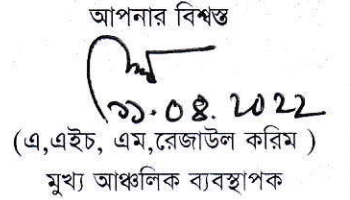 আপনার বিশ্বস্ত
১১.০৪.২০২২
(এ,এইচ, এম,রেজাউল করিম )
মুখ্য আঞ্চলিক ব্যবস্থাপক